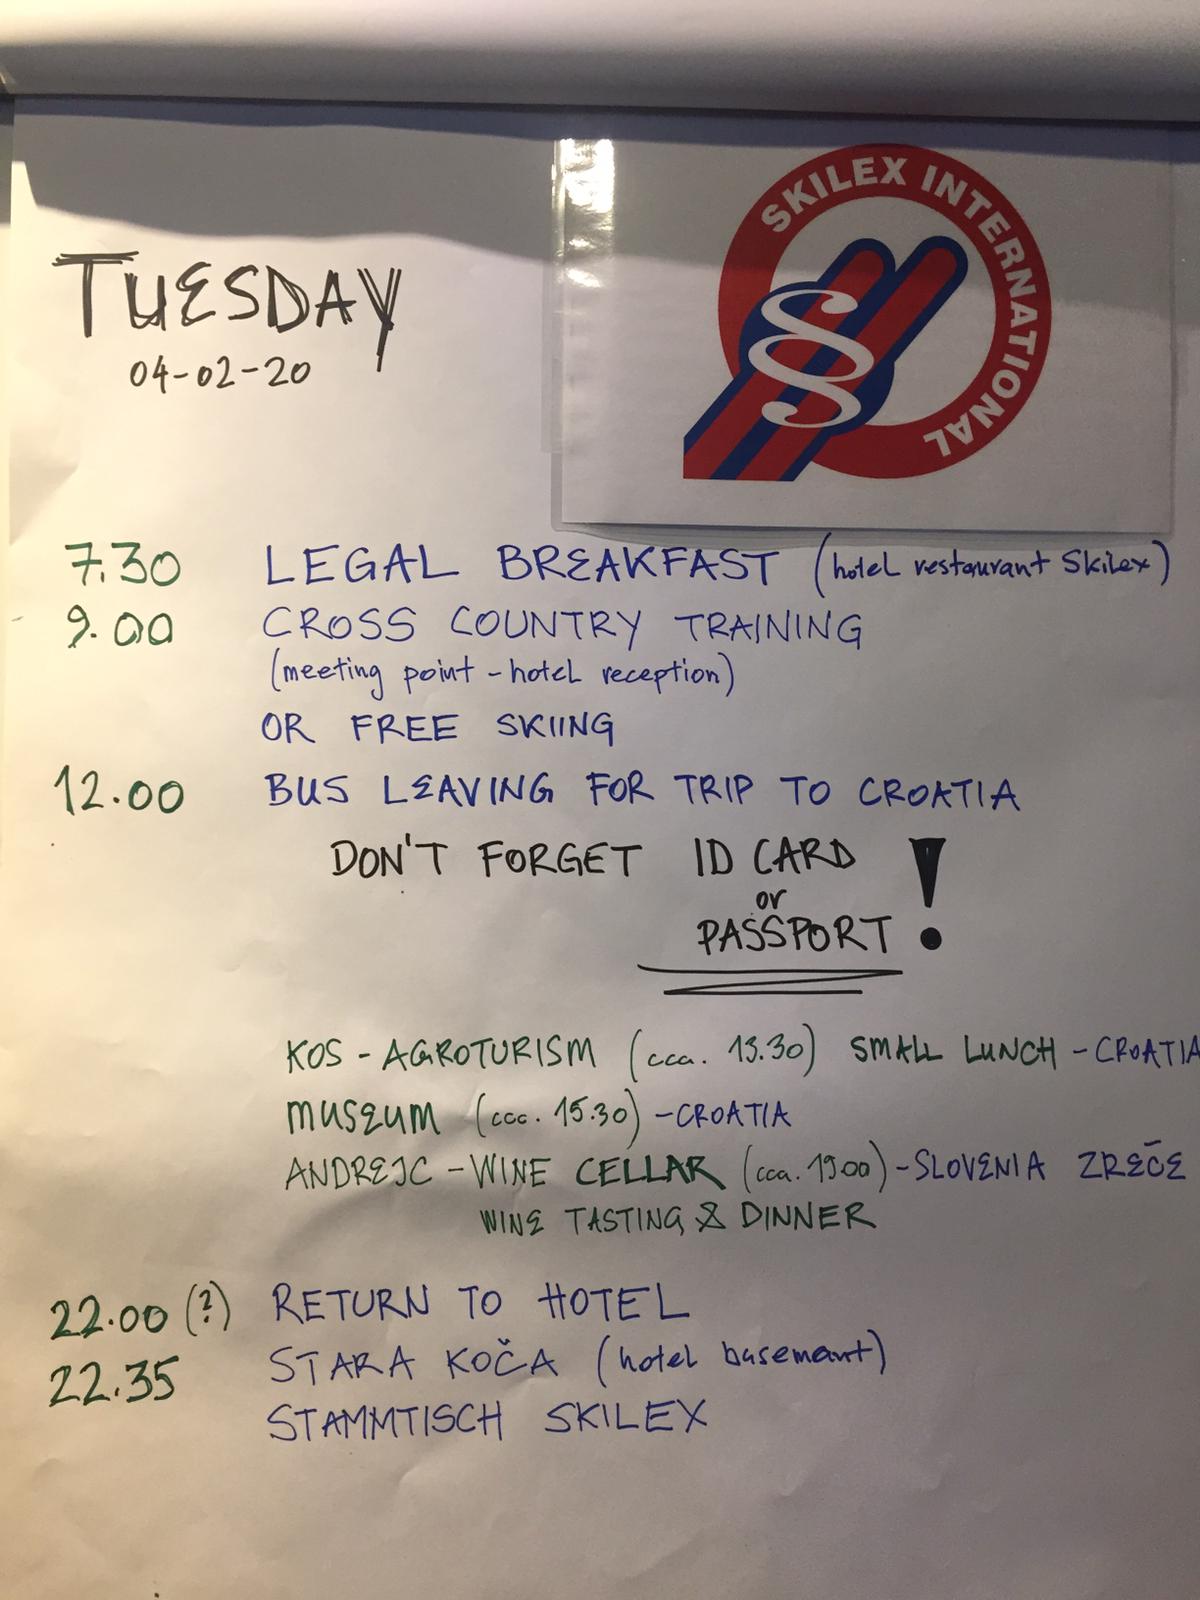 SKILEX INTERNATIONAL
§
TUESDAY
04-02-20
7.30 LEGAL BREAKFAST (hotel restaurant Skilex)
9.00 CROSS COUNTRY TRAINING
(meeting point - hotel reception)
OR FREE SKIING
12.00 BUS LEAVING FOR TRIP TO CROATIA
DON'T FORGET ID CARD !
or
PASSPORT
KOS - AGROTURISM (cca. 13.30) SMALL LUNCH - CROATIA
MUSEUM (ccc. 15.30) - CROATIA
ANDREJC - WINE CELLAR (cca. 19.00) - SLOVENIA ZREČE
WINE TASTING & DINNER
22.00 (?) RETURN TO HOTEL
22.35 STARA KOČA (hotel basemant)
STAMMTISCH SKILEX